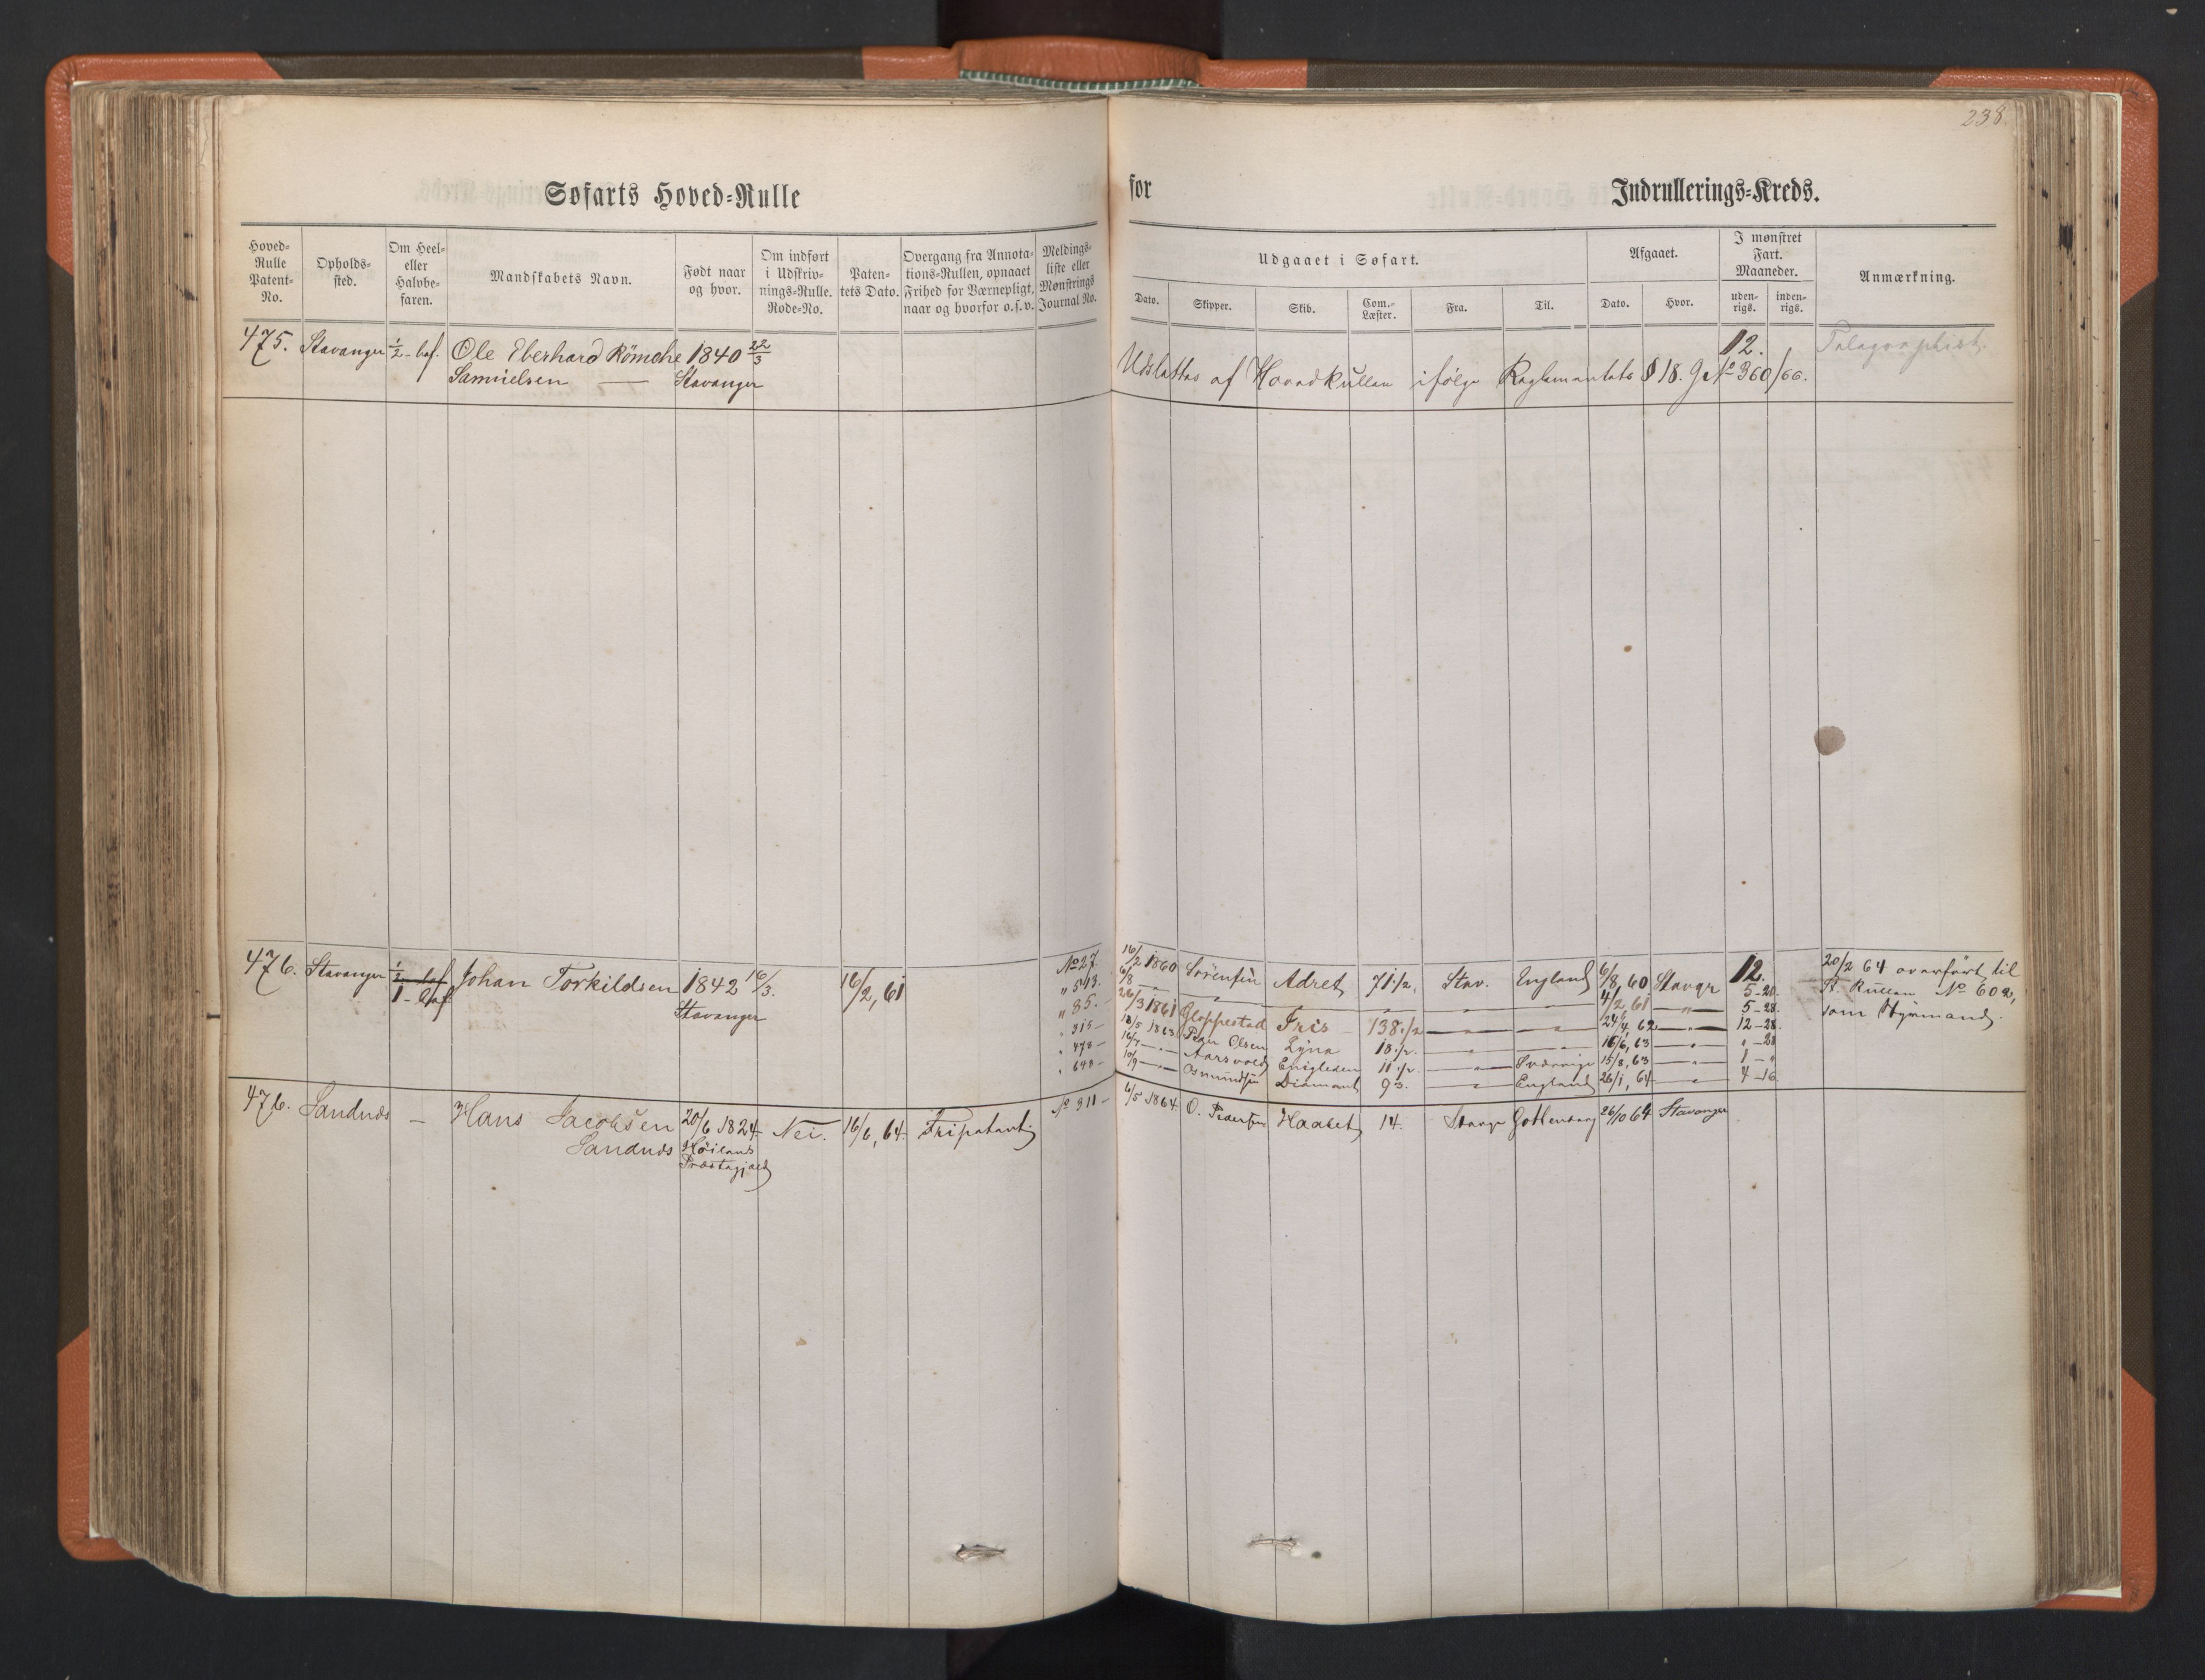 238.
Søfarts Hoved-Rulle
for
Indrullerings-Kreds.
Hoved-Rulle Patent-No.
Opholds-sted.
Om Heel- eller Halvbe-faren.
Mandskabets Navn.
Født naar og hvor.
Om indført i Udskriv-nings-Rulle. Rode-No.
Paten-tets Dato.
Overgang fra Annota-tions-Rullen, opnaaet Frihed for Værnepligt, naar og hvorfor o.s.v.
Meldings-liste eller Mønstrings Journal No.
Udgaaet i Søfart.
Dato.
Skipper.
Skib.
Com.-Læster.
Fra.
Til.
Afgaaet.
Dato.
Hvor.
I mønstret Fart. Maaneder.
uden-rigs.
inden-rigs.
Anmærkning.
475. Stavanger ½ - bef. Ole Eberhard Römche 1840 22/3 12. Telegraphist.
Samuelsen — Stavanger Udslettes af Hovedrullen ifølge Reglementets § 18. J No 360/66.
476. Stavanger ½ bef Johan Torkildsen 1842 16/3. 16/2, 61 No 27 16/2 1860 Sörensen Adret 71 ½, Stav. England 6/8, 60 Stavgr 12. 20/2 64 overført til
1 - bef Stavanger " 513. 6/8 — " — " — " 4/2 61 — " — 5-20. St. Rullen No 602,
" 85. — 26/3 1861 Gloppestad Iris 138 ½ — " — — " — 24/4, 62 — " — 5-28. som Styrmand.
" 315 — 18/5 1863 Peder Olsen Zyna 18 ½. — " — — " — 16/6, 63 — " — 12-28.
" 478 — 16/7 — " — Aarsvold Enigheden 11 ½. — " — Sverrige 15/8, 63 — " — " - 28
" 648 — 10/9 — " — Osmundsen Diamant 93. — " — England 26/1, 64 — " — 1 - "
4-16
476. Sandnæs — Hans Jacobsen 20/6 1824 Nei. 16/6, 64. Fripatent No 311 — 6/5 1864 O. Pedersen Haabet 14. Stavgr Gottenborg 26/10 64 Stavanger
Sandnæs Høilands
Præstegjæld